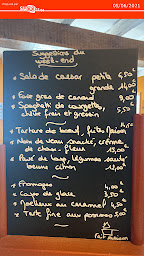 08/06/2021
Suggestions du
week-end
~ Salade caesar petite 6,50€
grande 14,00€
~ Foie gras de canard 9,00€
~ Spaghetti de courgettes,
olive frais et gressin 5,50€
~ Tartare de bœuf, frites Maison 14,50
~ Noix de veau snacké, crème
de chou-fleur 15,00€
~ Pavé de loup, légumes sauté
beurre citron 17,00€
~ Fromages 4,00€
~ Coupe de glace 3,50€
~ Moelleux au caramel 4,50€
~ Tarte fine aux pommes 5,00€
fait maison